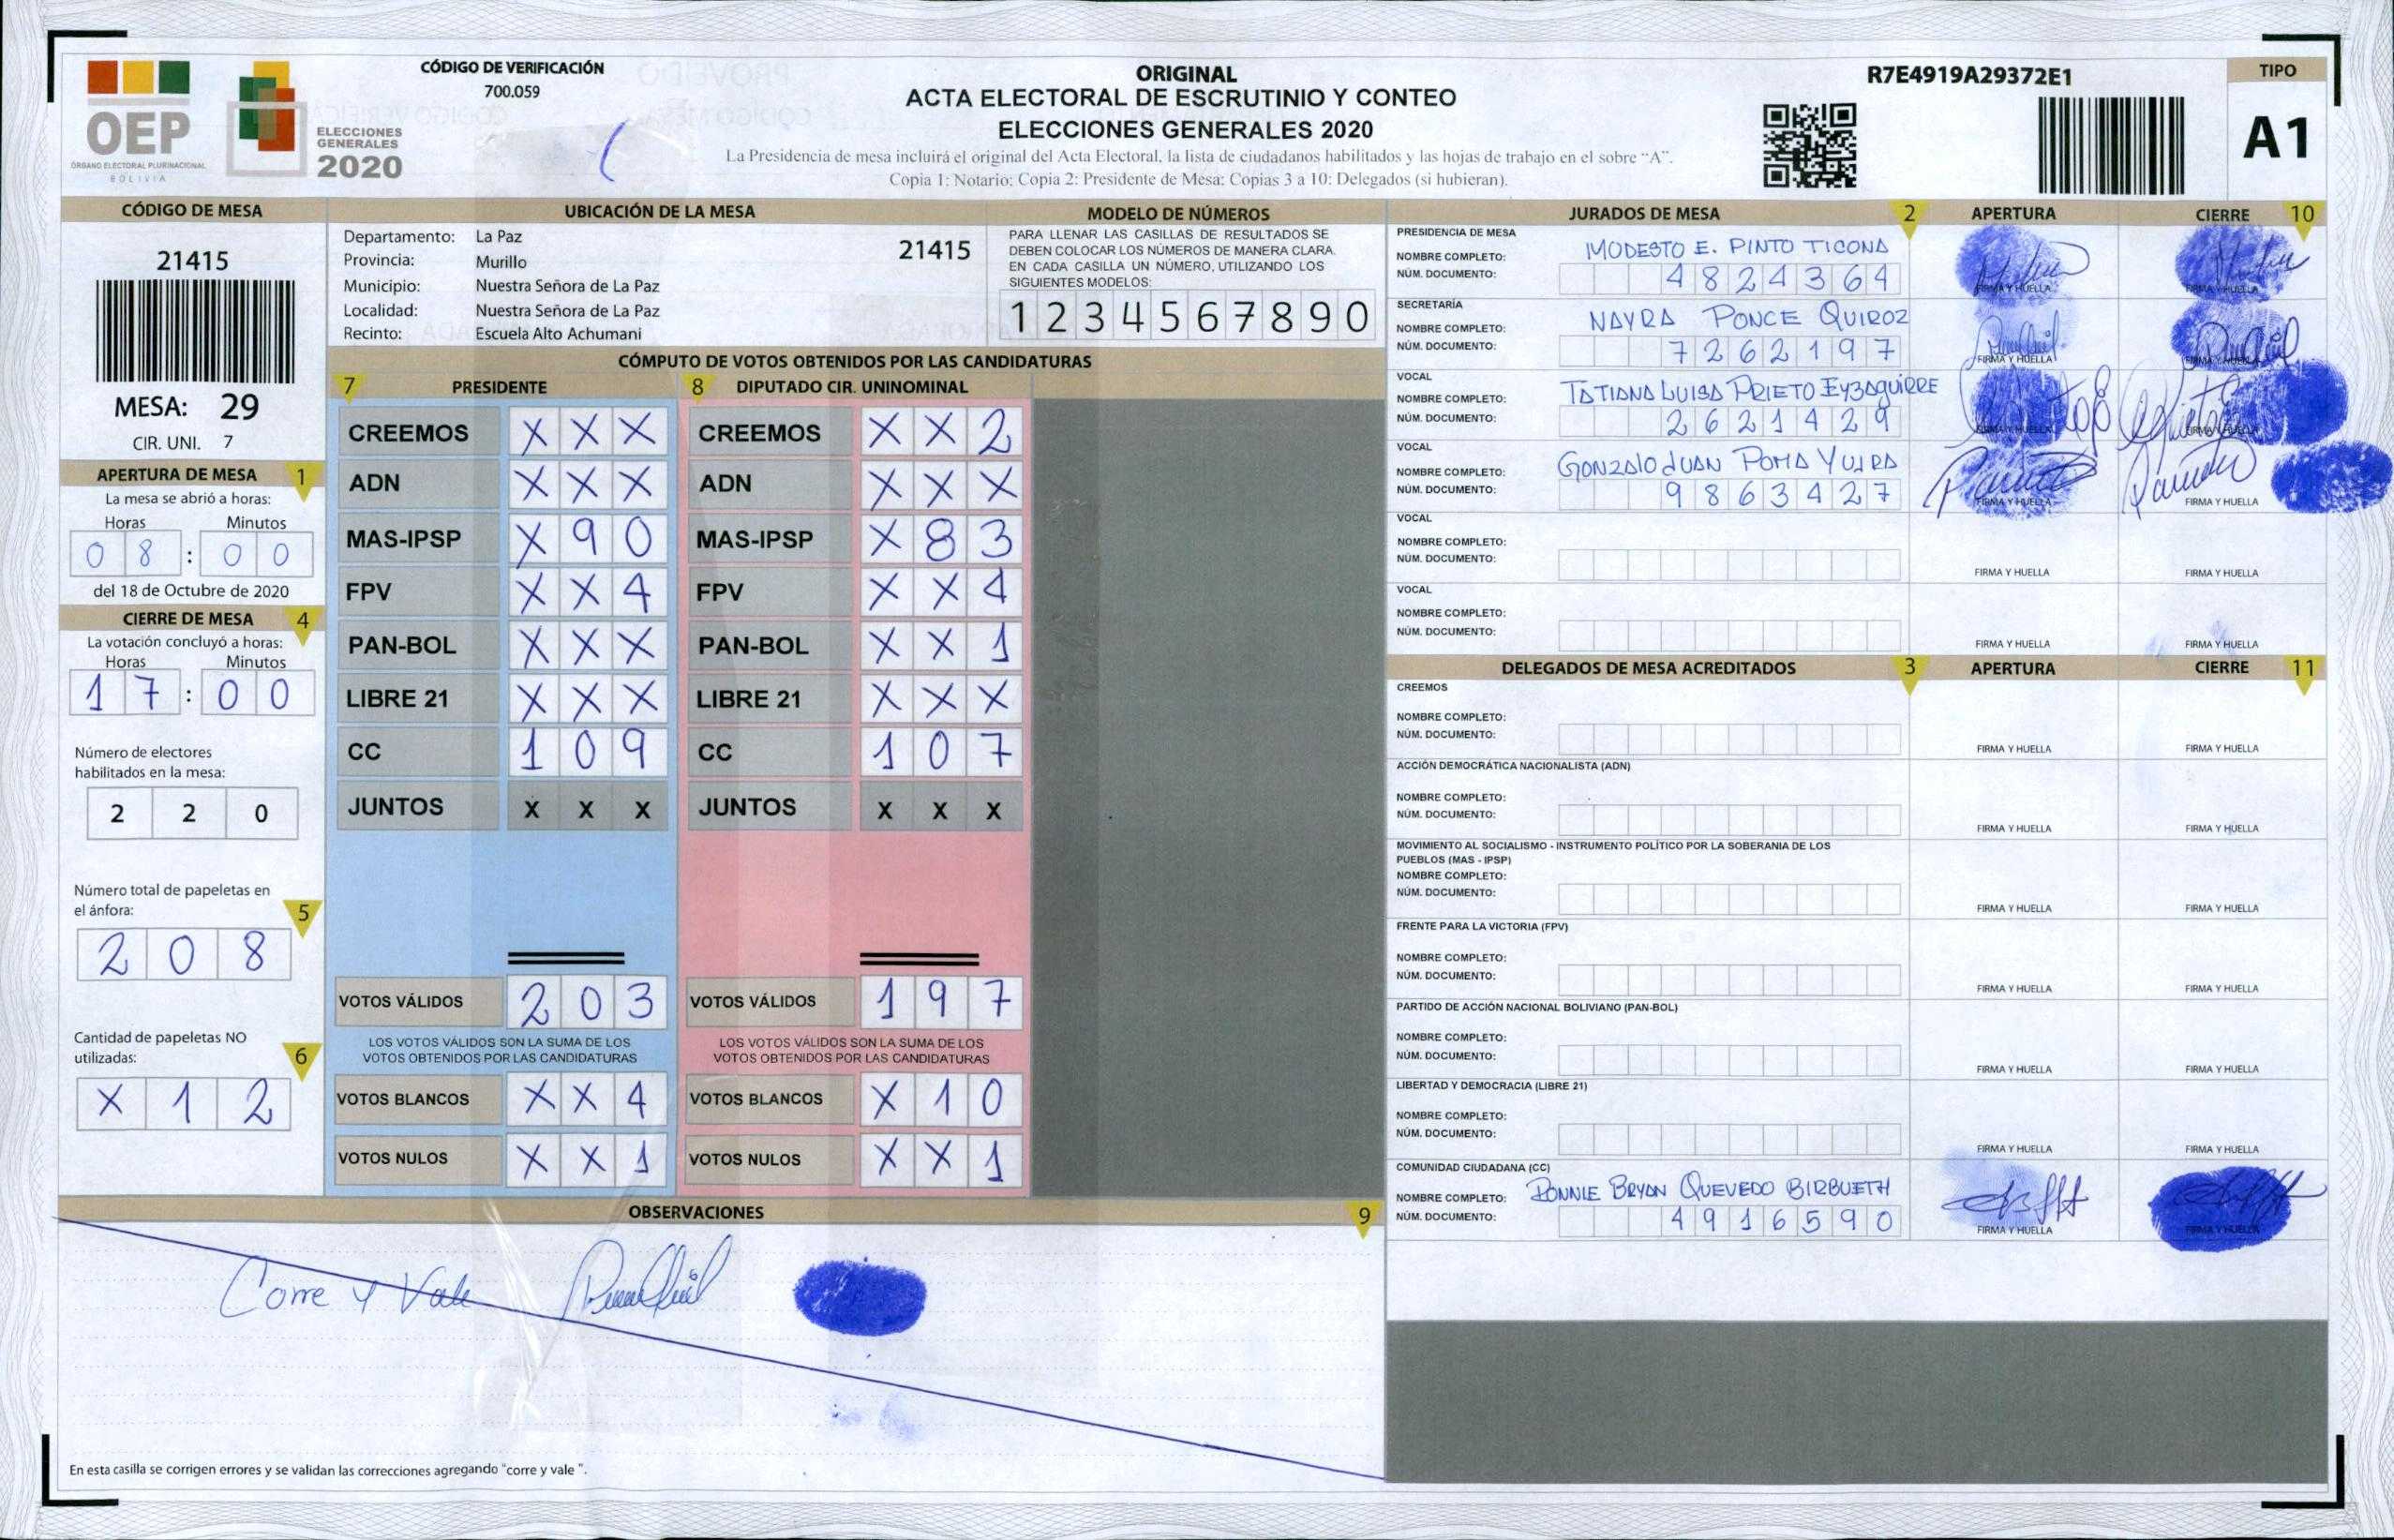 OEP
ÓRGANO ELECTORAL PLURINACIONAL
BOLIVIA
ELECCIONES
GENERALES
2020
CÓDIGO DE VERIFICACIÓN
700.059
ORIGINAL
ACTA ELECTORAL DE ESCRUTINIO Y CONTEO
ELECCIONES GENERALES 2020
La Presidencia de mesa incluirá el original del Acta Electoral, la lista de ciudadanos habilitados y las hojas de trabajo en el sobre "A".
Copia 1: Notario; Copia 2: Presidente de Mesa: Copias 3 a 10: Delegados (si hubieran).
R7E4919A29372E1
TIPO
A1
CÓDIGO DE MESA
21415
MESA: 29
CIR. UNI. 7
APERTURA DE MESA 1
La mesa se abrió a horas:
Horas Minutos
08 : 00
del 18 de Octubre de 2020
CIERRE DE MESA 4
La votación concluyó a horas:
Horas Minutos
17 : 00
Número de electores
habilitados en la mesa:
2 2 0
Número total de papeletas en
el ánfora: 5
2 0 8
Cantidad de papeletas NO
utilizadas: 6
X 1 2
UBICACIÓN DE LA MESA
Departamento: La Paz 21415
Provincia: Murillo
Municipio: Nuestra Señora de La Paz
Localidad: Nuestra Señora de La Paz
Recinto: Escuela Alto Achumani
MODELO DE NÚMEROS
PARA LLENAR LAS CASILLAS DE RESULTADOS SE
DEBEN COLOCAR LOS NÚMEROS DE MANERA CLARA.
EN CADA CASILLA UN NÚMERO, UTILIZANDO LOS
SIGUIENTES MODELOS:
1 2 3 4 5 6 7 8 9 0
CÓMPUTO DE VOTOS OBTENIDOS POR LAS CANDIDATURAS
7 PRESIDENTE 8 DIPUTADO CIR. UNINOMINAL
CREEMOS X X X CREEMOS X X 2
ADN X X X ADN X X X
MAS-IPSP X 9 0 MAS-IPSP X 8 3
FPV X X 4 FPV X X 4
PAN-BOL X X X PAN-BOL X X 1
LIBRE 21 X X X LIBRE 21 X X X
CC 1 0 9 CC 1 0 7
JUNTOS X X X JUNTOS X X X
VOTOS VÁLIDOS 2 0 3 VOTOS VÁLIDOS 1 9 7
LOS VOTOS VÁLIDOS SON LA SUMA DE LOS LOS VOTOS VÁLIDOS SON LA SUMA DE LOS
VOTOS OBTENIDOS POR LAS CANDIDATURAS VOTOS OBTENIDOS POR LAS CANDIDATURAS
VOTOS BLANCOS X X 4 VOTOS BLANCOS X 1 0
VOTOS NULOS X X 1 VOTOS NULOS X X 1
OBSERVACIONES 9
Corre y Vale
En esta casilla se corrigen errores y se validan las correcciones agregando "corre y vale ".
JURADOS DE MESA 2 APERTURA CIERRE 10
PRESIDENCIA DE MESA
NOMBRE COMPLETO: MODESTO E. PINTO TICONA
NÚM. DOCUMENTO: 4824364 FIRMA Y HUELLA FIRMA Y HUELLA
SECRETARIA
NOMBRE COMPLETO: NAYRA PONCE QUIROZ
NÚM. DOCUMENTO: 7262197 FIRMA Y HUELLA FIRMA Y HUELLA
VOCAL
NOMBRE COMPLETO: TATIANA LUISA PRIETO EYZAGUIRRE
NÚM. DOCUMENTO: 2621429 FIRMA Y HUELLA FIRMA Y HUELLA
VOCAL
NOMBRE COMPLETO: GONZALO JUAN POMA YUJRA
NÚM. DOCUMENTO: 9863427 FIRMA Y HUELLA FIRMA Y HUELLA
VOCAL
NOMBRE COMPLETO:
NÚM. DOCUMENTO: FIRMA Y HUELLA FIRMA Y HUELLA
VOCAL
NOMBRE COMPLETO:
NÚM. DOCUMENTO: FIRMA Y HUELLA FIRMA Y HUELLA
DELEGADOS DE MESA ACREDITADOS 3 APERTURA CIERRE 11
CREEMOS
NOMBRE COMPLETO:
NÚM. DOCUMENTO: FIRMA Y HUELLA FIRMA Y HUELLA
ACCIÓN DEMOCRÁTICA NACIONALISTA (ADN)
NOMBRE COMPLETO:
NÚM. DOCUMENTO: FIRMA Y HUELLA FIRMA Y HUELLA
MOVIMIENTO AL SOCIALISMO - INSTRUMENTO POLÍTICO POR LA SOBERANIA DE LOS
PUEBLOS (MAS - IPSP)
NOMBRE COMPLETO:
NÚM. DOCUMENTO: FIRMA Y HUELLA FIRMA Y HUELLA
FRENTE PARA LA VICTORIA (FPV)
NOMBRE COMPLETO:
NÚM. DOCUMENTO: FIRMA Y HUELLA FIRMA Y HUELLA
PARTIDO DE ACCIÓN NACIONAL BOLIVIANO (PAN-BOL)
NOMBRE COMPLETO:
NÚM. DOCUMENTO: FIRMA Y HUELLA FIRMA Y HUELLA
LIBERTAD Y DEMOCRACIA (LIBRE 21)
NOMBRE COMPLETO:
NÚM. DOCUMENTO: FIRMA Y HUELLA FIRMA Y HUELLA
COMUNIDAD CIUDADANA (CC)
NOMBRE COMPLETO: RONNIE BRYAN QUEVEDO BIRBUETH
NÚM. DOCUMENTO: 4916590 FIRMA Y HUELLA FIRMA Y HUELLA